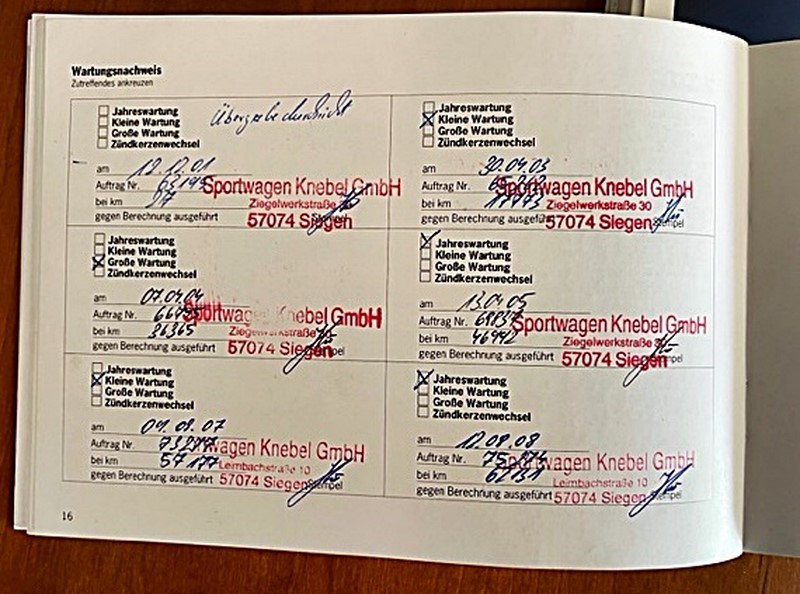 Wartungsnachweis
Zutreffendes ankreuzen
Jahreswartung
Kleine Wartung
Große Wartung
Zündkerzenwechsel
Übergabedurchsicht
am 12.12.01
Auftrag Nr. Sportwagen Knebel GmbH
bei km 97 Ziegelwerkstraße
gegen Berechnung ausgeführt 57074 Siegen
Jahreswartung
Kleine Wartung
Große Wartung
Zündkerzenwechsel
am 30.04.03
Auftrag Nr. Sportwagen Knebel GmbH
bei km Ziegelwerkstraße 30
gegen Berechnung ausgeführt 57074 Siegen Stempel
Jahreswartung
Kleine Wartung
Große Wartung
Zündkerzenwechsel
am 07.04.04
Auftrag Nr. Sportwagen Knebel GmbH
bei km 36365 Ziegelwerkstraße
gegen Berechnung ausgeführt 57074 Siegen
Jahreswartung
Kleine Wartung
Große Wartung
Zündkerzenwechsel
am 13.04.05
Auftrag Nr. Sportwagen Knebel GmbH
bei km 46992 Ziegelwerkstraße
gegen Berechnung ausgeführt 57074 Siegen
Jahreswartung
Kleine Wartung
Große Wartung
Zündkerzenwechsel
am 01.08.07
Auftrag Nr. Sportwagen Knebel GmbH
bei km 57177 Leimbachstraße 10
gegen Berechnung ausgeführt 57074 Siegen Stempel
Jahreswartung
Kleine Wartung
Große Wartung
Zündkerzenwechsel
am 12.08.08
Auftrag Nr. Sportwagen Knebel GmbH
bei km Leimbachstraße 10
gegen Berechnung ausgeführt 57074 Siegen Stempel
16